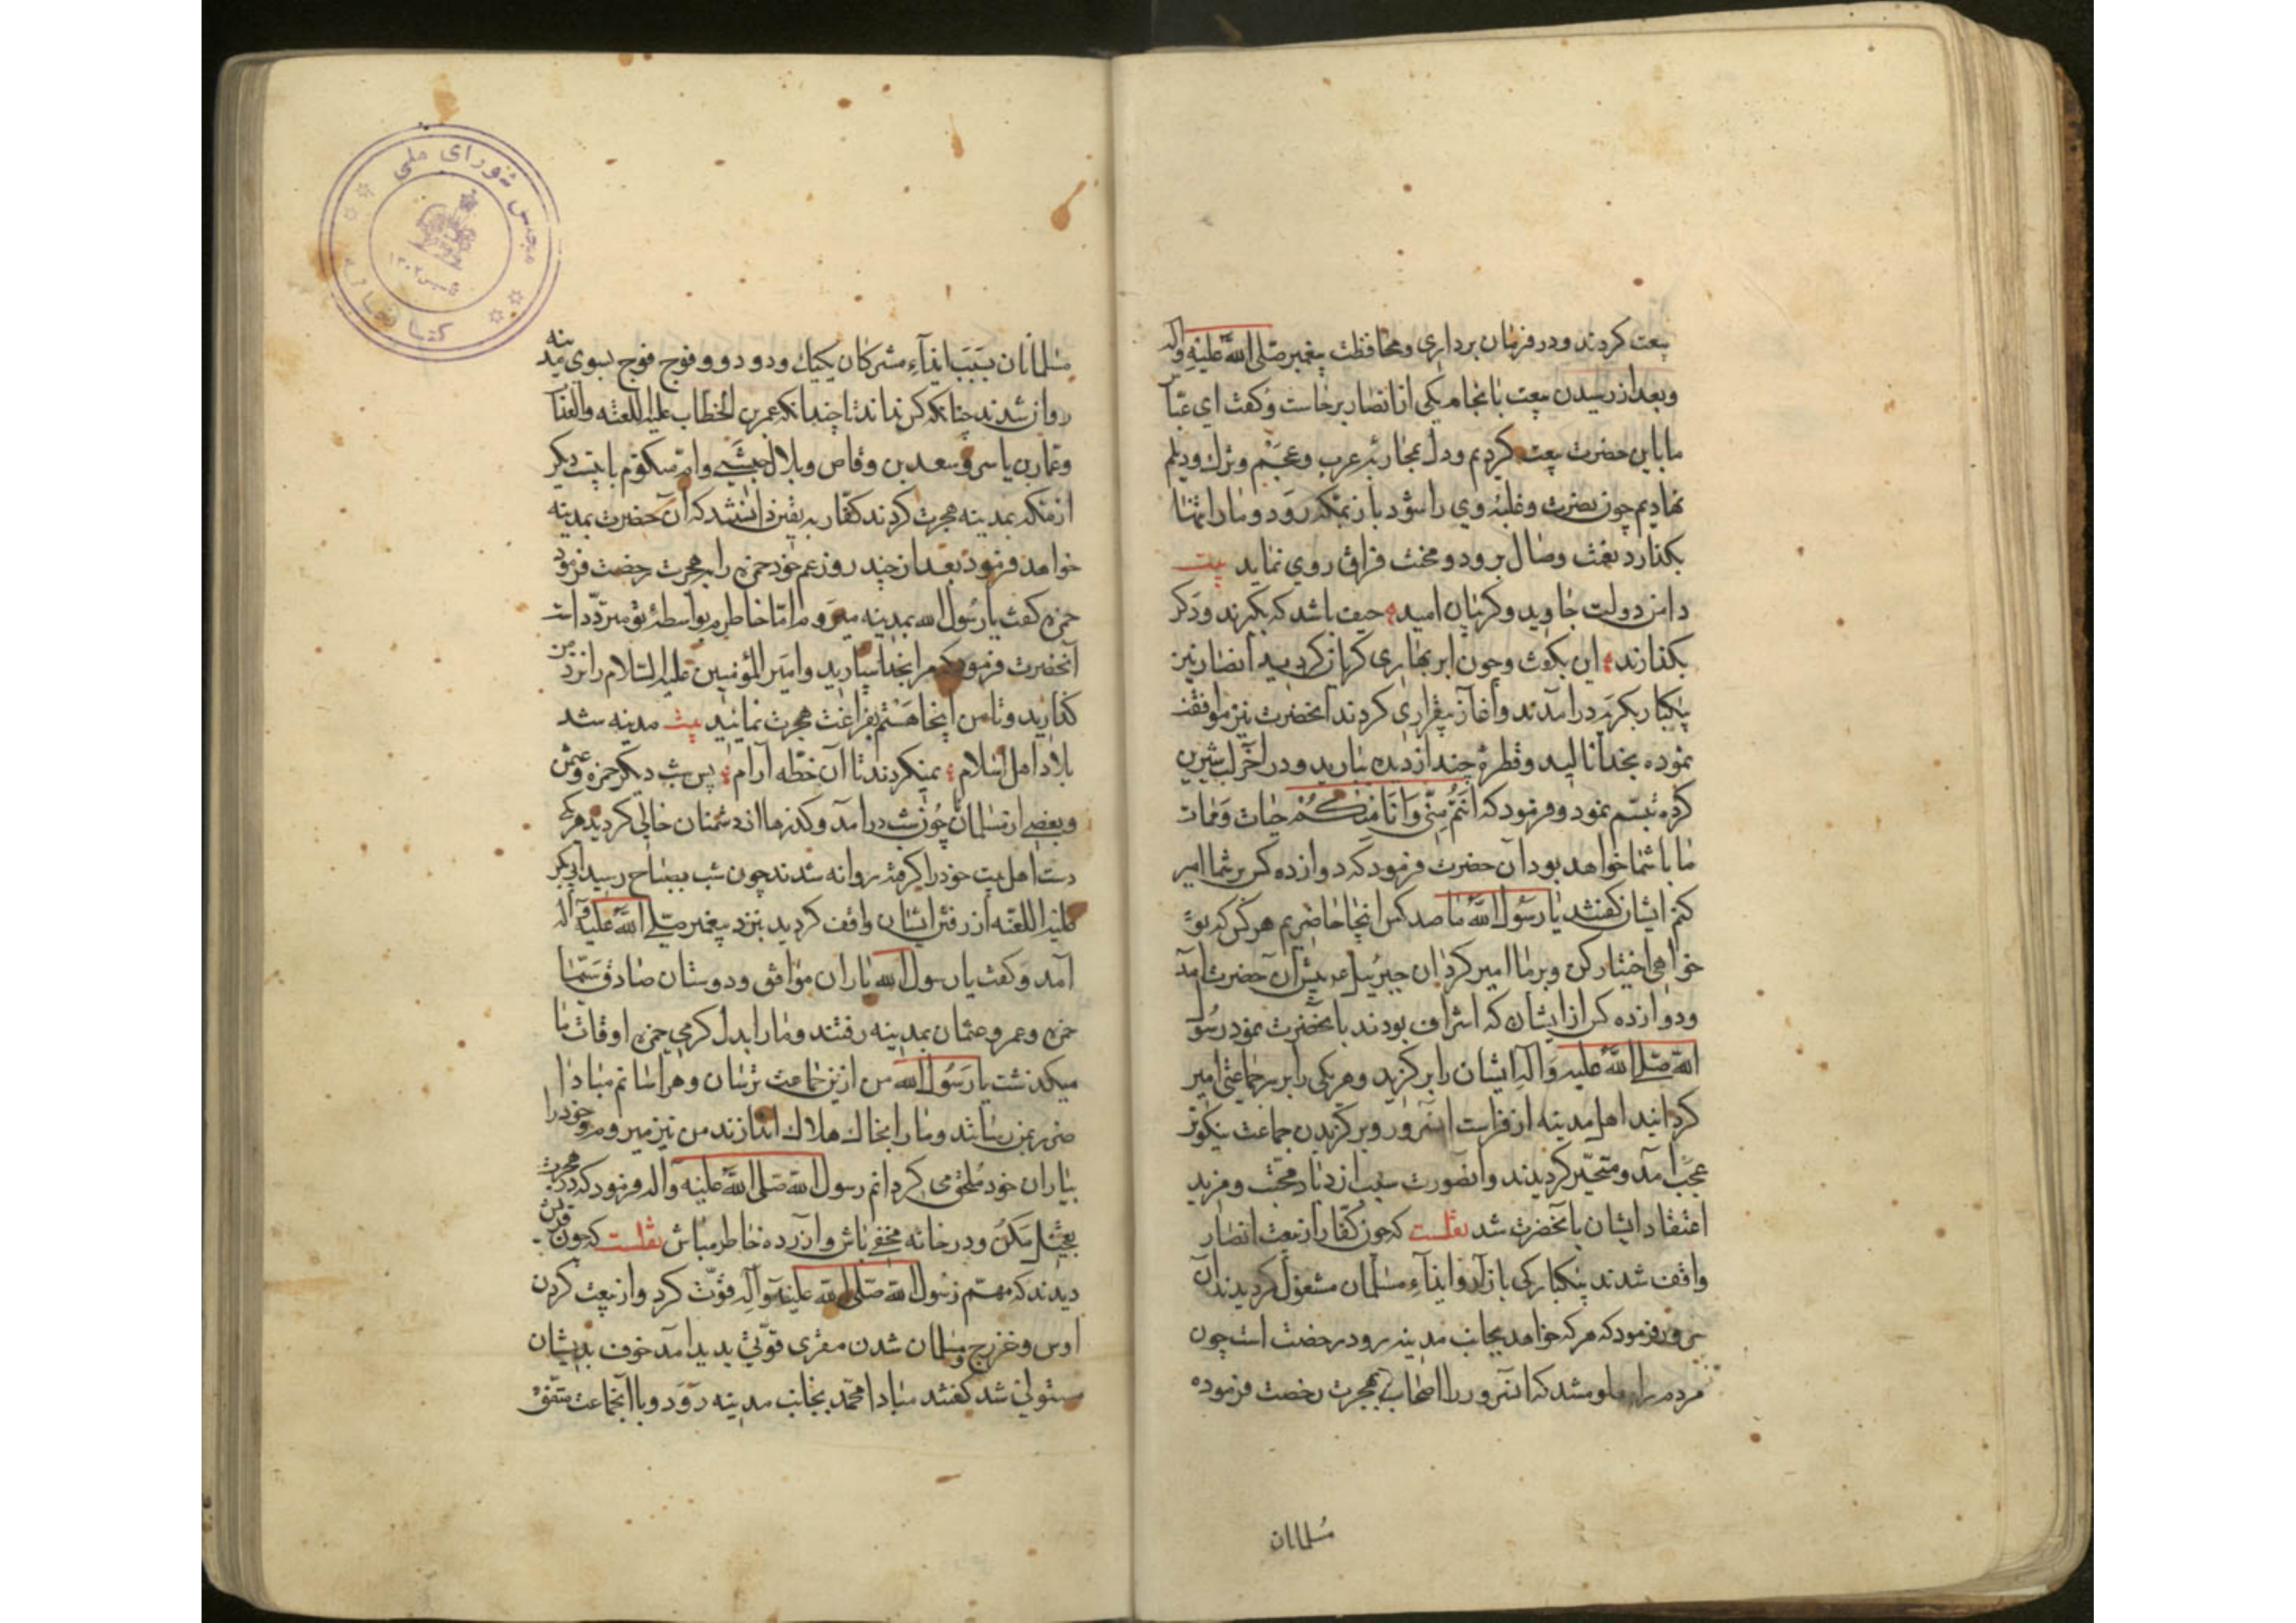 بیعت کردند و در فرمان برداری و محافظت پیغمبر صلی الله علیه و اله
و بعد از رسیدن بیعت بانجام یکی از انصار برخاست و گفت ای عباس
ما باین حضرت بیعت کردیم و دل بمحاربه عرب و عجم و ترك و دیلم
نهادیم چون نصرت و غلبه وی را شود باز بمکه رود و ما را تنها
بکذارد نعمت وصال برود و محنت فراق روی نماید بیت
دامن دولت جاوید و کریبان امید حیف باشد که بکیرند و دکر
بکذارند این بکفت و چون ابر بهاری کریان کردید انصار نیز
بیکبار بکریه درامدند و آغاز بیقراری کردند آنحضرت نیز موافقت
نموده بخدا نالید و قطرهٔ چند از دیده بارید و در آخر لب شیرین
کرده تبسم نمود و فرمود که أنتم منی و أنا منکم حیات و ممات
ما با شما خواهد بود آن حضرت فرمود که دوازده کس بر شما امیر
کنم ایشان کفتند یا رسول الله ما صد کس اینجا حاضریم هر کس که تو
خواهی اختیار کن و بر ما امیر کردان جبرئیل پیش آن حضرت آمد
و دوازده کس از ایشان که اشراف بودند بآنحضرت نمود رسول
الله صلی الله علیه و اله ایشان را برکزید و هر یکی را بر سر جماعتی امیر
کردانید اهل مدینه از فراست آنسرور و برکزیدن جماعت نیکوتر
عجب آمد و متحیر کردیدند و آنصورت سبب ازدیاد محبت و مزید
اعتقاد ایشان بآنحضرت شد نقلست که چون کفار از بیعت انصار
واقف شدند بیکبارکی بازار و ایذاء مسلمان مشغول کردیدند آن
سرور فرمود که هر که خواهد بجانب مدینه رود رخصت است چون
مردم را معلوم شد که آنسرور اصحاب را بهجرت رخصت فرموده
مسلمانان
مسلمانان بسبب ایذآء مشرکان یکیك و دو دو و فوج فوج بسوی مدینه
روان شدند چنانکه کس نماند تا چندانکه عمر بن الخطاب علیه اللعنه والعذاب
و عمار بن یاسر و سعد بن وقاص و بلال حبشی و ام مکتوم با بیست دیکر
از مکه بمدینه هجرت کردند کفار به یقین دانستند که آن حضرت بمدینه
خواهد فرمود بعد از چند روز عم خود حمزه را بهجرت رخصت فرمود
حمزه کفت یا رسول الله بمدینه میروم اما خاطرم بواسطهٔ تو متردد است
آنحضرت فرمود که مرا بخدا سپارید و امیر المؤمنین علیه السلام را نزد من
کذارید و تا من اینجا هستم بفراغت هجرت نمائید بیت مدینه شد
بلاد اهل اسلام نمیکردند تا آن خطه آرام پس شب دیکر حمزه و عثمن
و بعضی از مسلمانان چون شب درآمد و کذرها از دشمنان خالی کردید هر یکی
دست اهل بیت خود را کرفته روانه شدند چون شب بصباح رسید ابی بکر
علیه اللعنه از رفتن ایشان واقف کردید بنزد پیغمبر صلی الله علیه و آله
آمد و کفت یا رسول الله یاران موافق و دوستان صادق سیما
حمزه و عمر و عثمان بمدینه رفتند و ما را بدل کرمی حمزه اوقات ما
میکذشت یا رسول الله من ازین جماعت ترسان و هراسانم مبادا
ضرر بمن رسانند و ما را بخاك هلاك اندازند من نیز میروم و خود را
بیاران خود ملحق می کردانم رسول الله صلی الله علیه و اله فرمود که در هجرت
تعجیل مکن و در خانه مخفی باش و آزرده خاطر مباش نقلست که چون قریش
دیدند که مهم رسول الله صلی الله علیه و آله قوت کرد و از بیعت کردن
اوس و خزرج و مسلمان شدن مقری قوتی بدید آمد خوف بدیشان
مستولی شد کفتند مبادا محمد بجانب مدینه رود و با آنجماعت متفق
مجلس شورای ملی
کتابخانه